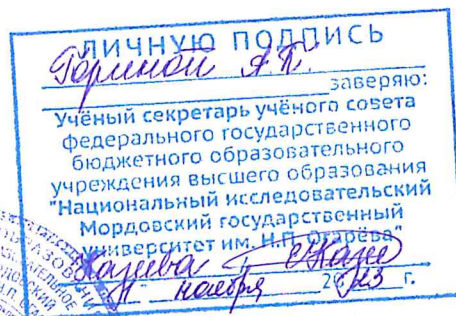 ЛИЧНУЮ ПОДПИСЬ
Гориной А.П.
заверяю:
Учёный секретарь учёного совета
федерального государственного
бюджетного образовательного
учреждения высшего образования
"Национальный исследовательский
Мордовский государственный
университет им. Н.П. Огарёва"
ноября 2023 г.